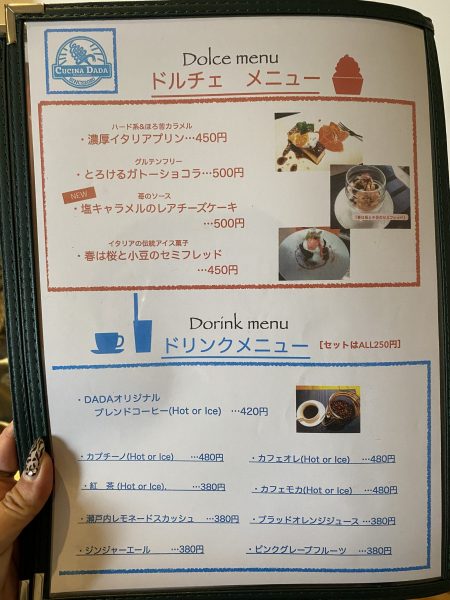 CUCINA DADA
Dolce menu
ドルチェ メニュー
ハード系&ほろ苦カラメル
・濃厚イタリアプリン…450円
グルテンフリー
・とろけるガトーショコラ…500円
NEW
苺のソース
・塩キャラメルのレアチーズケーキ
…500円
イタリアの伝統アイス菓子
・春は桜と小豆のセミフレッド
…450円
Dorink menu
ドリンクメニュー [セットはALL250円]
・DADAオリジナル
ブレンドコーヒー(Hot or Ice) …420円
・カプチーノ(Hot or Ice) …480円
・カフェオレ(Hot or Ice) …480円
・紅 茶 (Hot or Ice). …380円
・カフェモカ(Hot or Ice) …480円
・瀬戸内レモネードスカッシュ …380円
・ブラッドオレンジジュース …380円
・ジンジャーエール …380円
・ピンクグレープフルーツ …380円